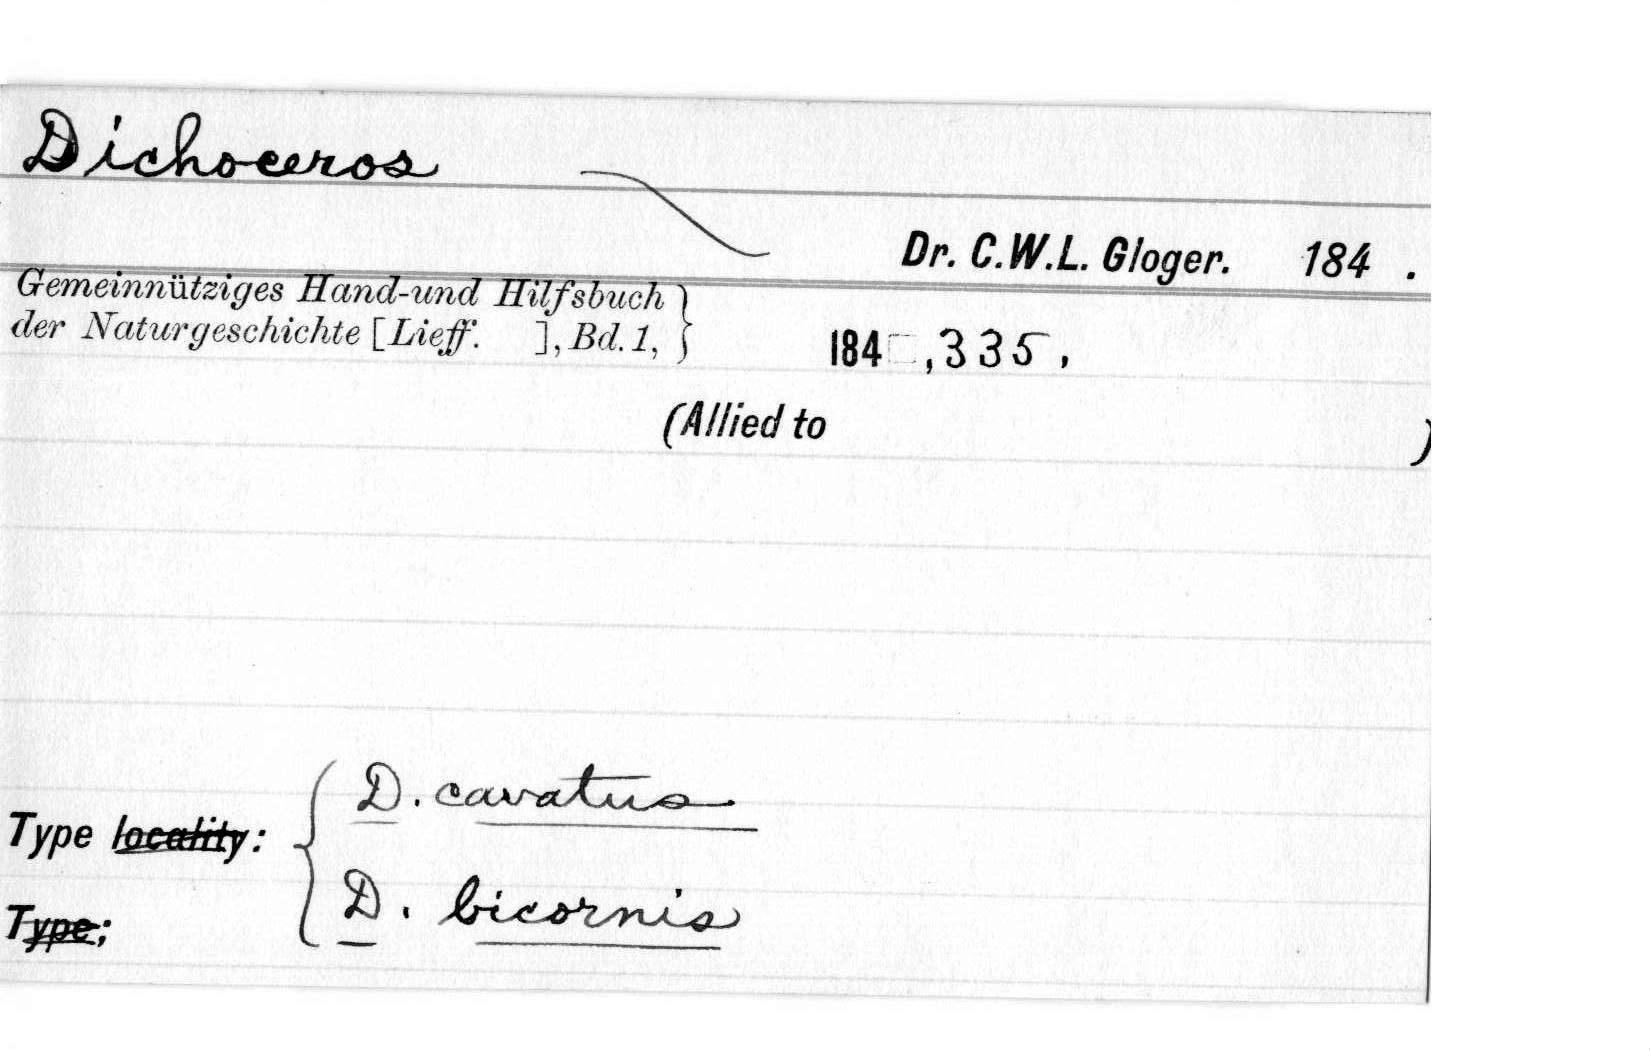 Dichoceros
Dr. C.W.L. Gloger. 184 .
Gemeinnütziges Hand-und Hilfsbuch
der Naturgeschichte [Lieff. ], Bd. 1, } 184 ,335,
(Allied to )
D. cavatus
Type locality:
D. bicornis
Type;